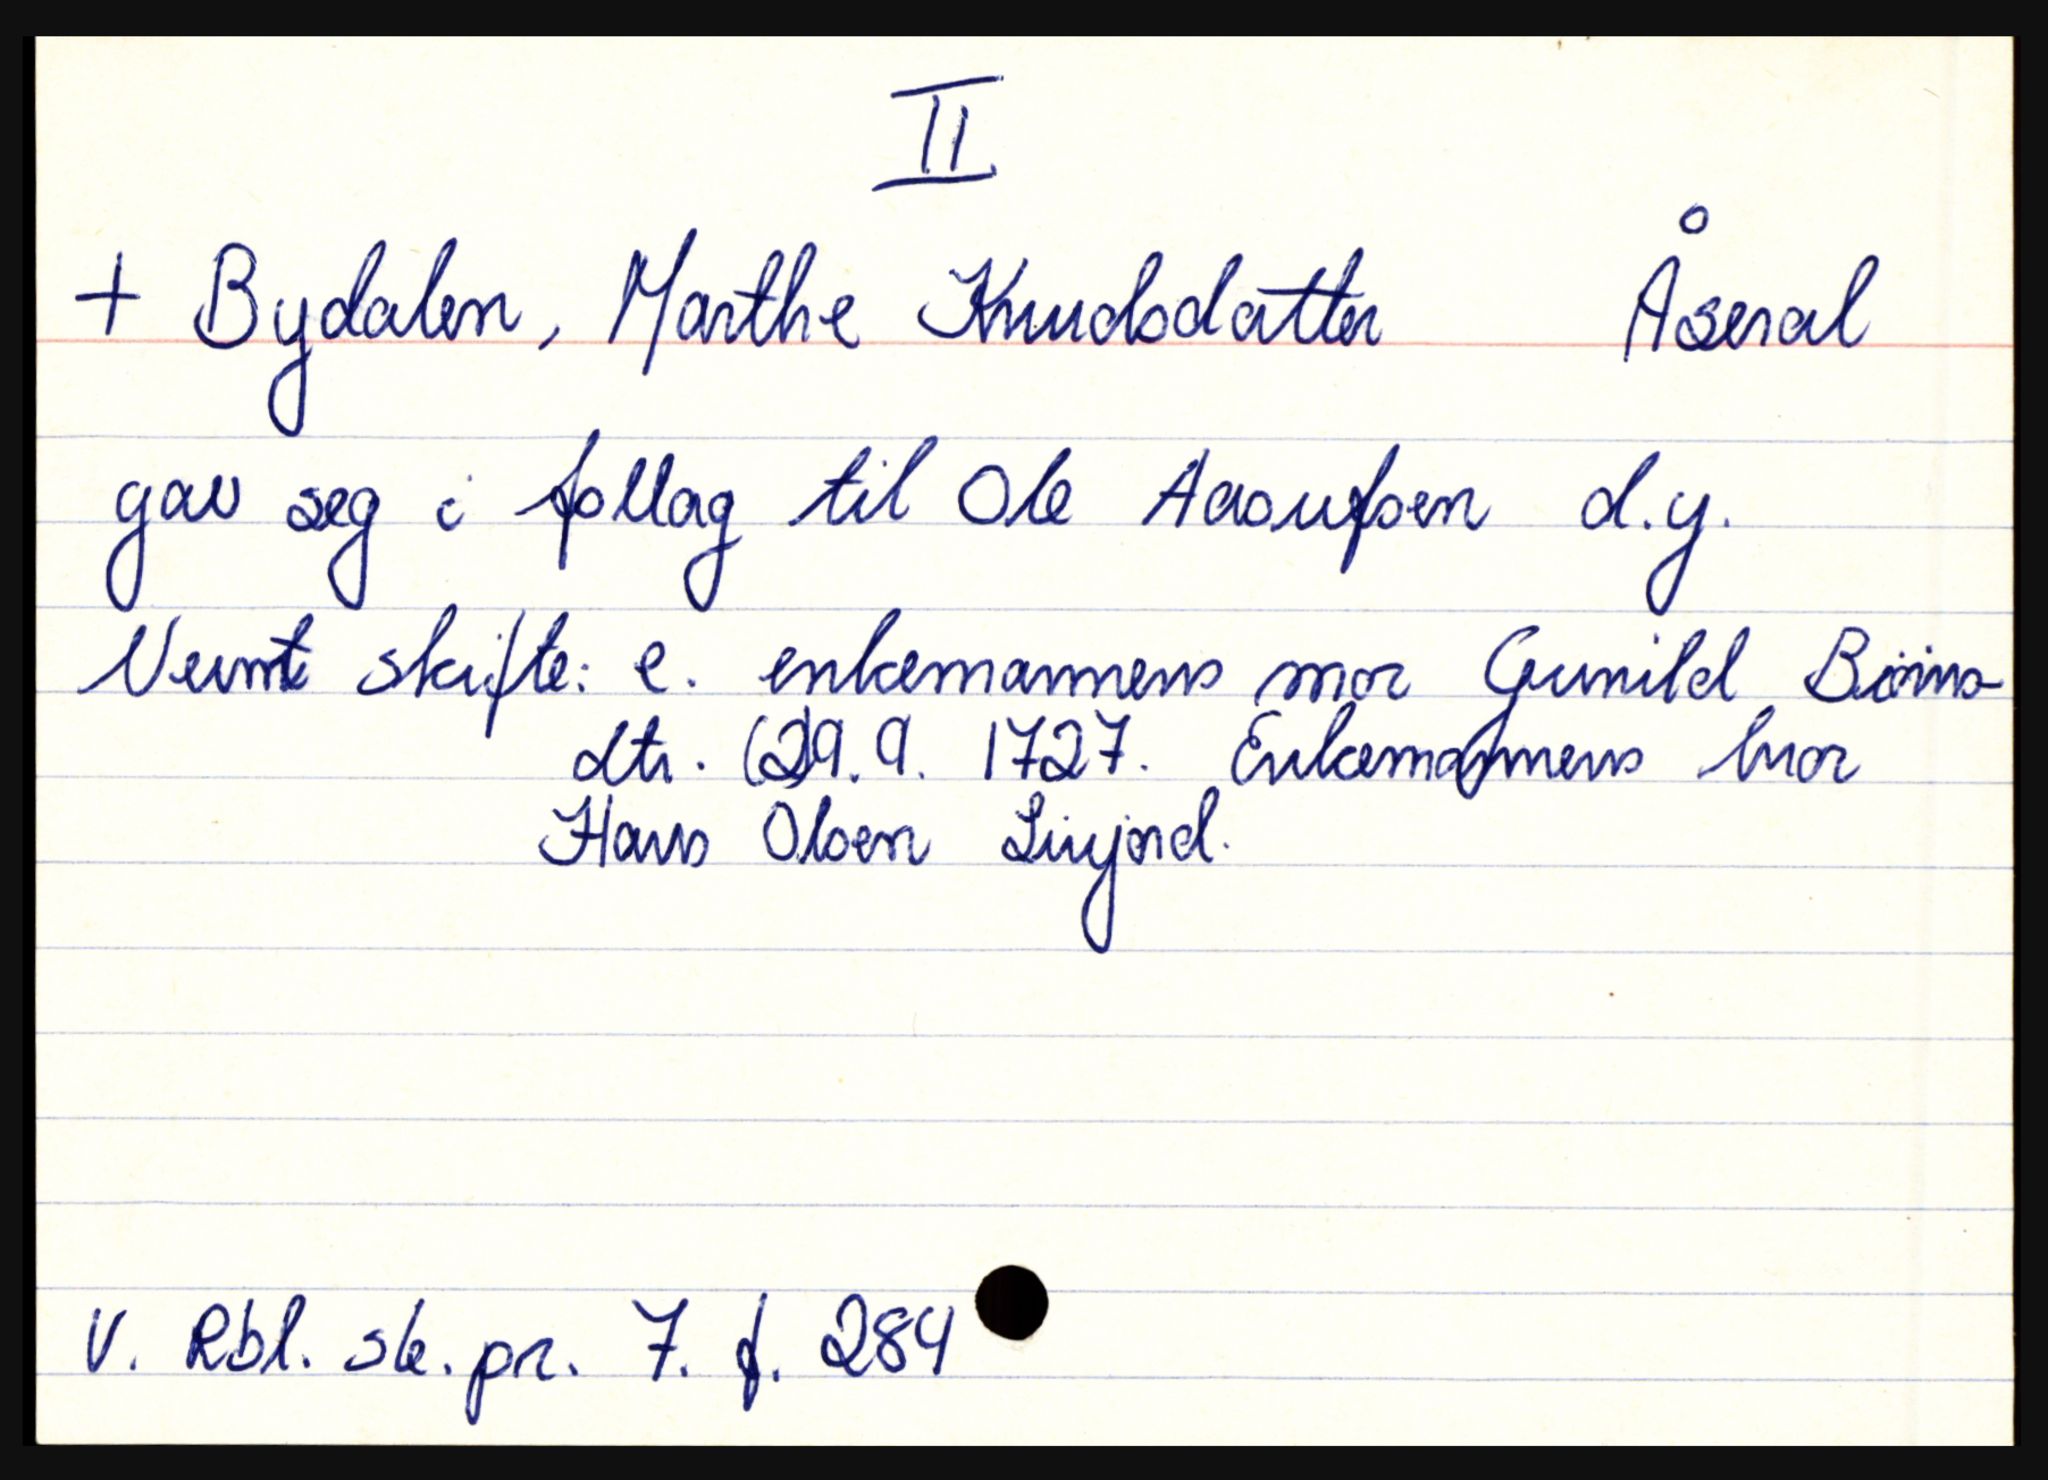 II
+ Bydalen, Marthe Knudsdatter Åseral
gav seg i follag til Ole Aasulfsen d.y.
Nevnt skifte: e. enkemannens mor Gunild Biørns-
dtr. (2)9.9. 1727. Enkemannens bror
Hans Olsen
V. Rbl. sk.pr. 7. f. 284